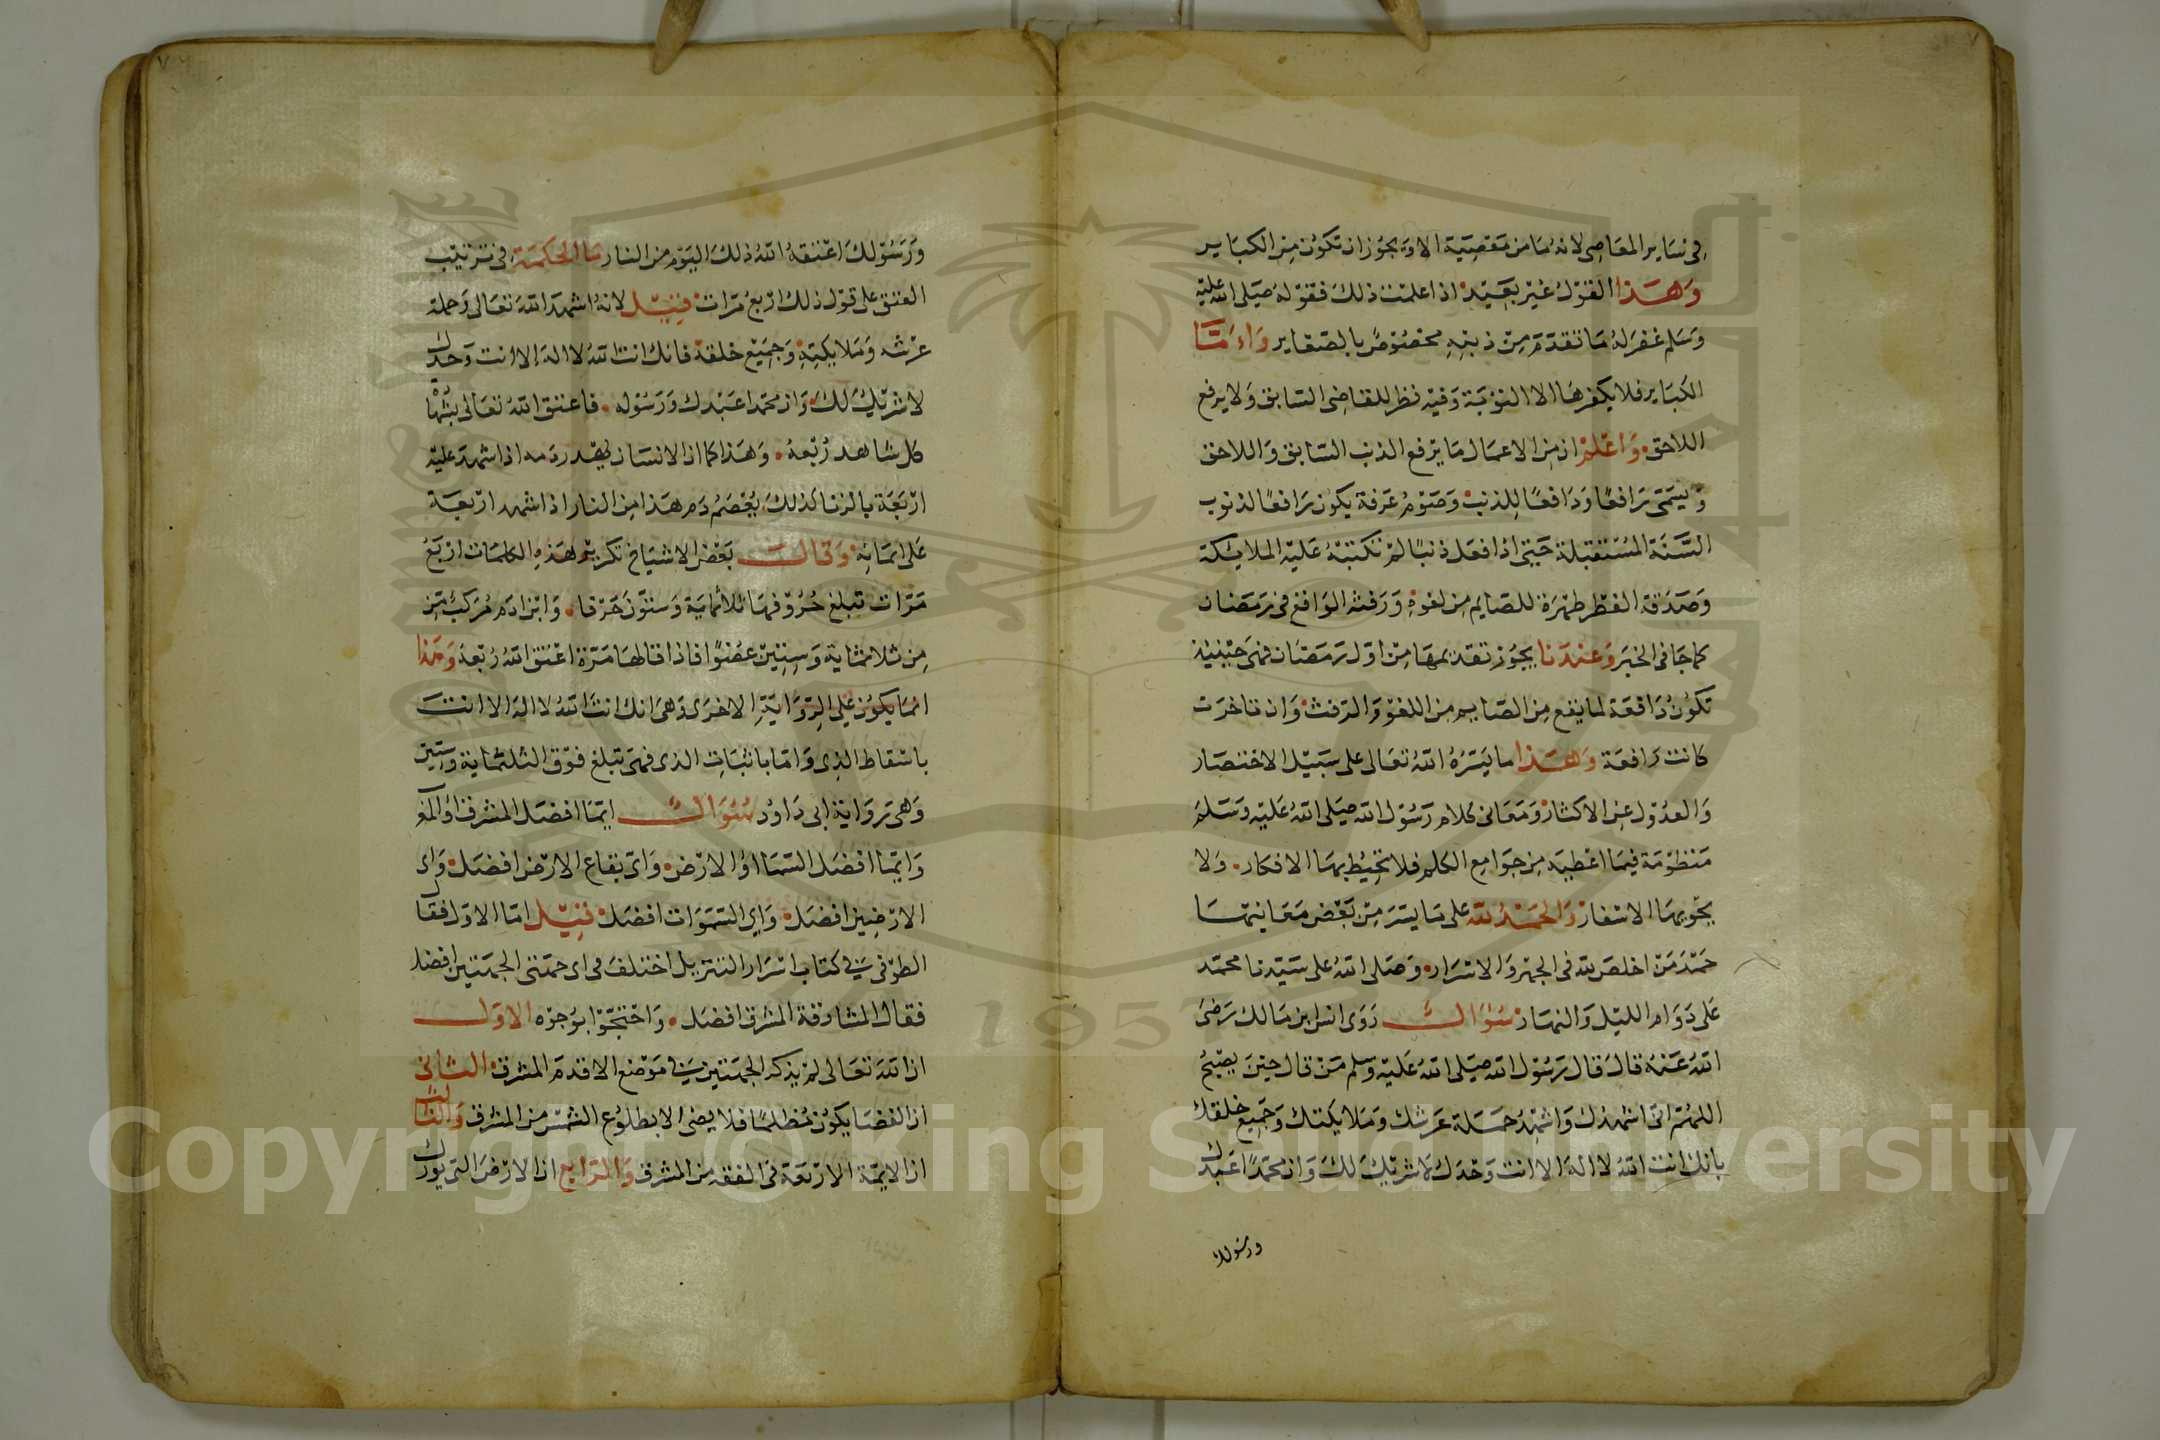 في ساير المعاصي لانه ما من معصية الا ويجوز ان تكون من الكباير
وهذا القول غير بعيد اذا علمت ذلك فقوله صلى الله عليه
وسلم غفر له ما تقدم من ذنبه مخصوص بالصغاير واما
الكباير فلا يكفرها الا التوبة وفيه نظر للقاضي السابق ولا يرفع
اللاحق واعلم ان من الاعمال ما يرفع الذنب السابق واللاحق
ويسمى رافعا ودافعا للذنب وصوم عرفة يكون رافعا لذنوب
السنة المستقبلة حتى اذا فعل ذنبا لم تكتبه عليه الملائكة
وصدقة الفطر طهرة للصايم من لغوه ورفثه الواقع في رمضان
كما جا في الخبر وعندنا يجوز تقديمها من اول رمضان فهي حينيذ
تكون دافعة لما يقع من الصايم من اللغو والرفث وان تاخرت
كانت رافعة وهذا ما يسره الله تعالى على سبيل الاختصار
والعدول عن الاكثار ومعاني كلام رسول الله صلى الله عليه وسلم
منظومة فيما اعطيه من جوامع الكلم فلا تحيط بها الافكار ولا
يحويها الاسفار والحمد لله على ما يسر من بعض معانيها
حمد من اخلص لله في الجهر والاسرار وصلى الله على سيدنا محمد
على دوام الليل والنهار سؤال روى انس ابن مالك رضي
الله عنه قال قال رسول الله صلى الله عليه وسلم من قال حين يصبح
اللهم اني اشهدك واشهد حملة عرشك وملايكتك وجميع خلقك
بانك انت الله لا اله الا انت وحدك لا شريك لك وان محمدا عبدك
ورسولك
ورسولك اعتقه الله ذلك اليوم من النار ما الحكمة في ترتيب
العتق على قول ذلك اربع مرات قيل لانه اشهد الله تعالى وحملة
عرشه وملايكته وجميع خلقه فانك انت الله لا اله الا انت وحدك
لا شريك لك وان محمدا عبدك ورسوله فاعتق الله تعالى بشهادة
كل شاهد ربعه وهذا كما ان الانسان يهدر دمه اذا شهد عليه
اربعة بالزنا كذلك يعصم دم هذا من النار اذا اشهد اربعة
على ايمانه وقال بعض الاشياخ تكرير هذه الكلمات اربع
مرات تبلغ حروفها ثلاثماية وستون حرفا وابن ادم مركب من
من ثلاثماية وستين عضوا فاذا قالها مرة اعتق الله ربعه وهذا
انما يكون على الرواية الاخرى وهي انك انت الله لا اله الا انت
باسقاط الذي واما باثبات الذي فهي تبلغ فوق الثلثماية وستين
وهي رواية ابي داود سؤال ايما افضل المشرق او المغ
وايما افضل السما او الارض واي بقاع الارض افضل واي
الارضين افضل واي السموات افضل قيل اما الاول فقال
الطوفي في كتاب اسرار التنزيل اختلف في اي حمتى الجهتين افضل
فقال المشارقة المشرق افضل واحتجوا بوجوه الاول
ان الله تعالى لم يذكر الجهتين في موضع الا قدم المشرق الثاني
ان الفضا يكون مظلما فلا يضى الا بطلوع الشمس من المشرق والثالث
ان الايمة الاربعة في الفقه من المشرق والرابع ان الارض التي بورك
1957
Copyright © King Saud University